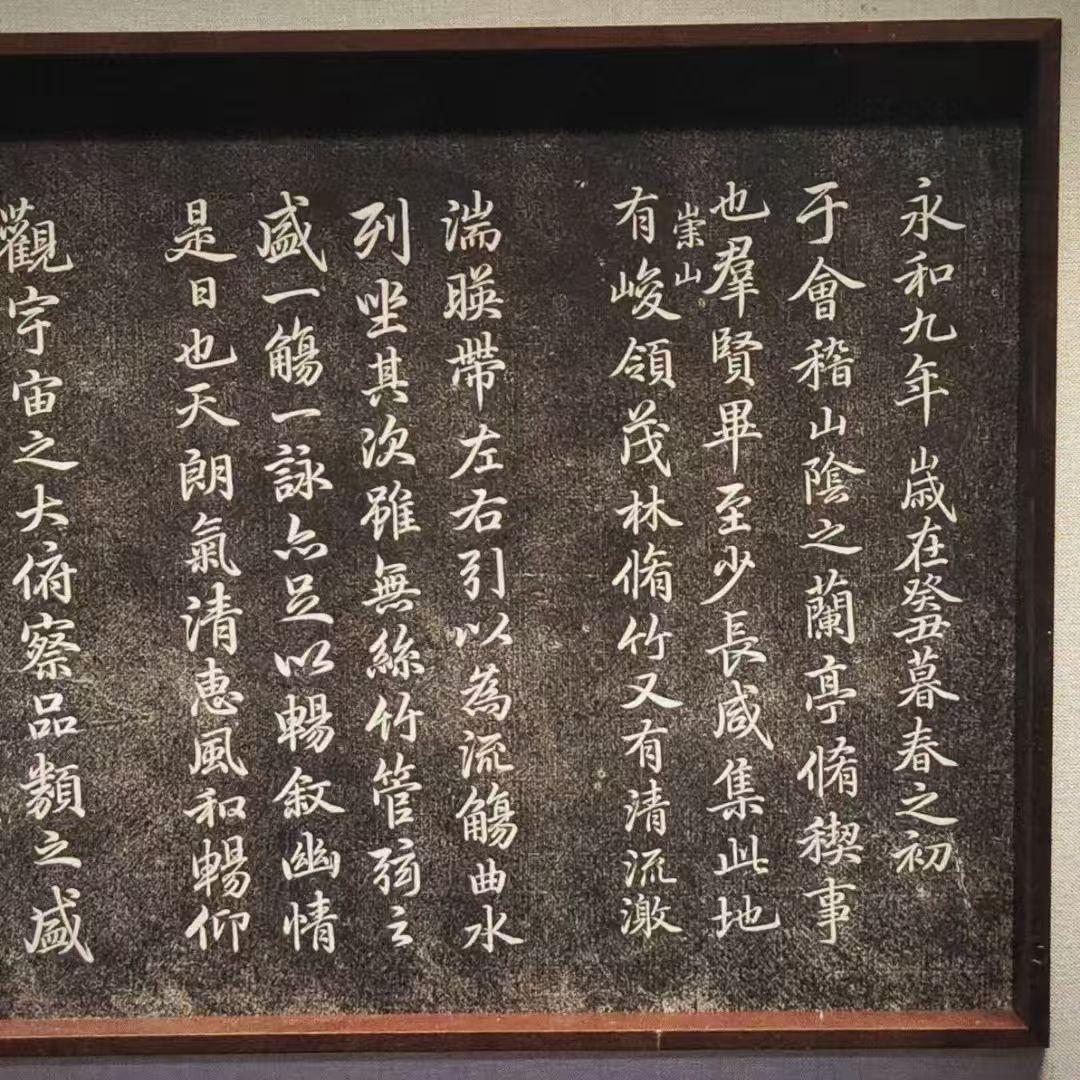 永和九年歲在癸丑暮春之初
于會稽山陰之蘭亭脩稧事
也羣賢畢至少長咸集此地
崇山
有峻領茂林脩竹又有清流激
湍暎帶左右引以為流觴曲水
列坐其次雖無絲竹管弦之
盛一觴一詠亦足以暢敘幽情
是日也天朗氣清惠風和暢仰
觀宇宙之大俯察品類之盛